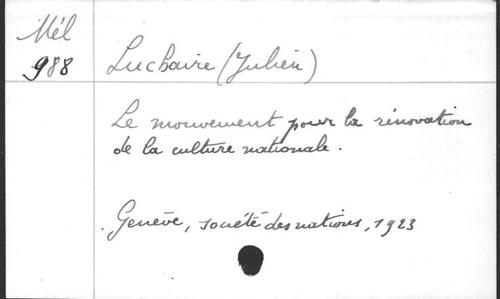 Mél
988
Luchaire (Julien)
Le mouvement pour la rénovation
de la culture nationale.
Genève, société des nations, 1923